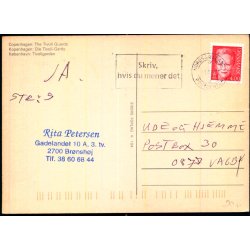 Copenhagen: The Tivoli Guards
Kopenhagen: Die Tivoli-Garde
København: Tivoligarden
Skriv,
hvis du mener det
JA.
Rita Petersen
Gadelandet 10 A, 3. tv.
2700 Brønshøj
Tlf. 38 60 68 44
UDEOG HJEMME
POSTBOX 30
0877 VALBY